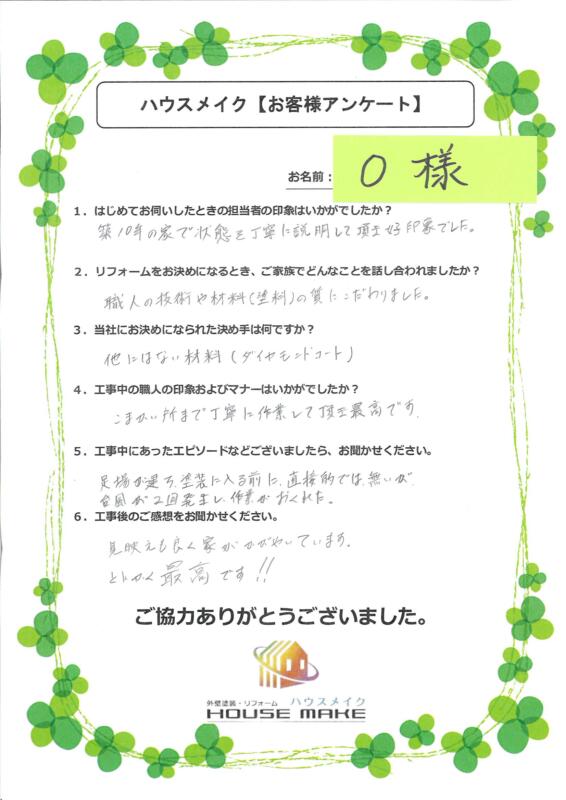 ハウスメイク【お客様アンケート】
お名前：
O 様
１．はじめてお伺いしたときの担当者の印象はいかがでしたか？
築10年の家で状態を丁寧に説明して頂き好印象でした。
２．リフォームをお決めになるとき、ご家族でどんなことを話し合われましたか？
職人の技術や材料(塗料)の質にこだわりました。
３．当社にお決めになられた決め手は何ですか？
他にはない材料(ダイヤモンドコート)
４．工事中の職人の印象およびマナーはいかがでしたか？
こまかい所まで丁寧に作業して頂き最高です。
５．工事中にあったエピソードなどございましたら、お聞かせください。
足場が建ち、塗装に入る前に、直接的では無いが、
台風が2回発生し、作業がおくれた。
６．工事後のご感想をお聞かせください。
見映えも良く家がかがやいています。
とにかく最高です!!
ご協力ありがとうございました。
外壁塗装・リフォーム ハウスメイク
HOUSE MAKE